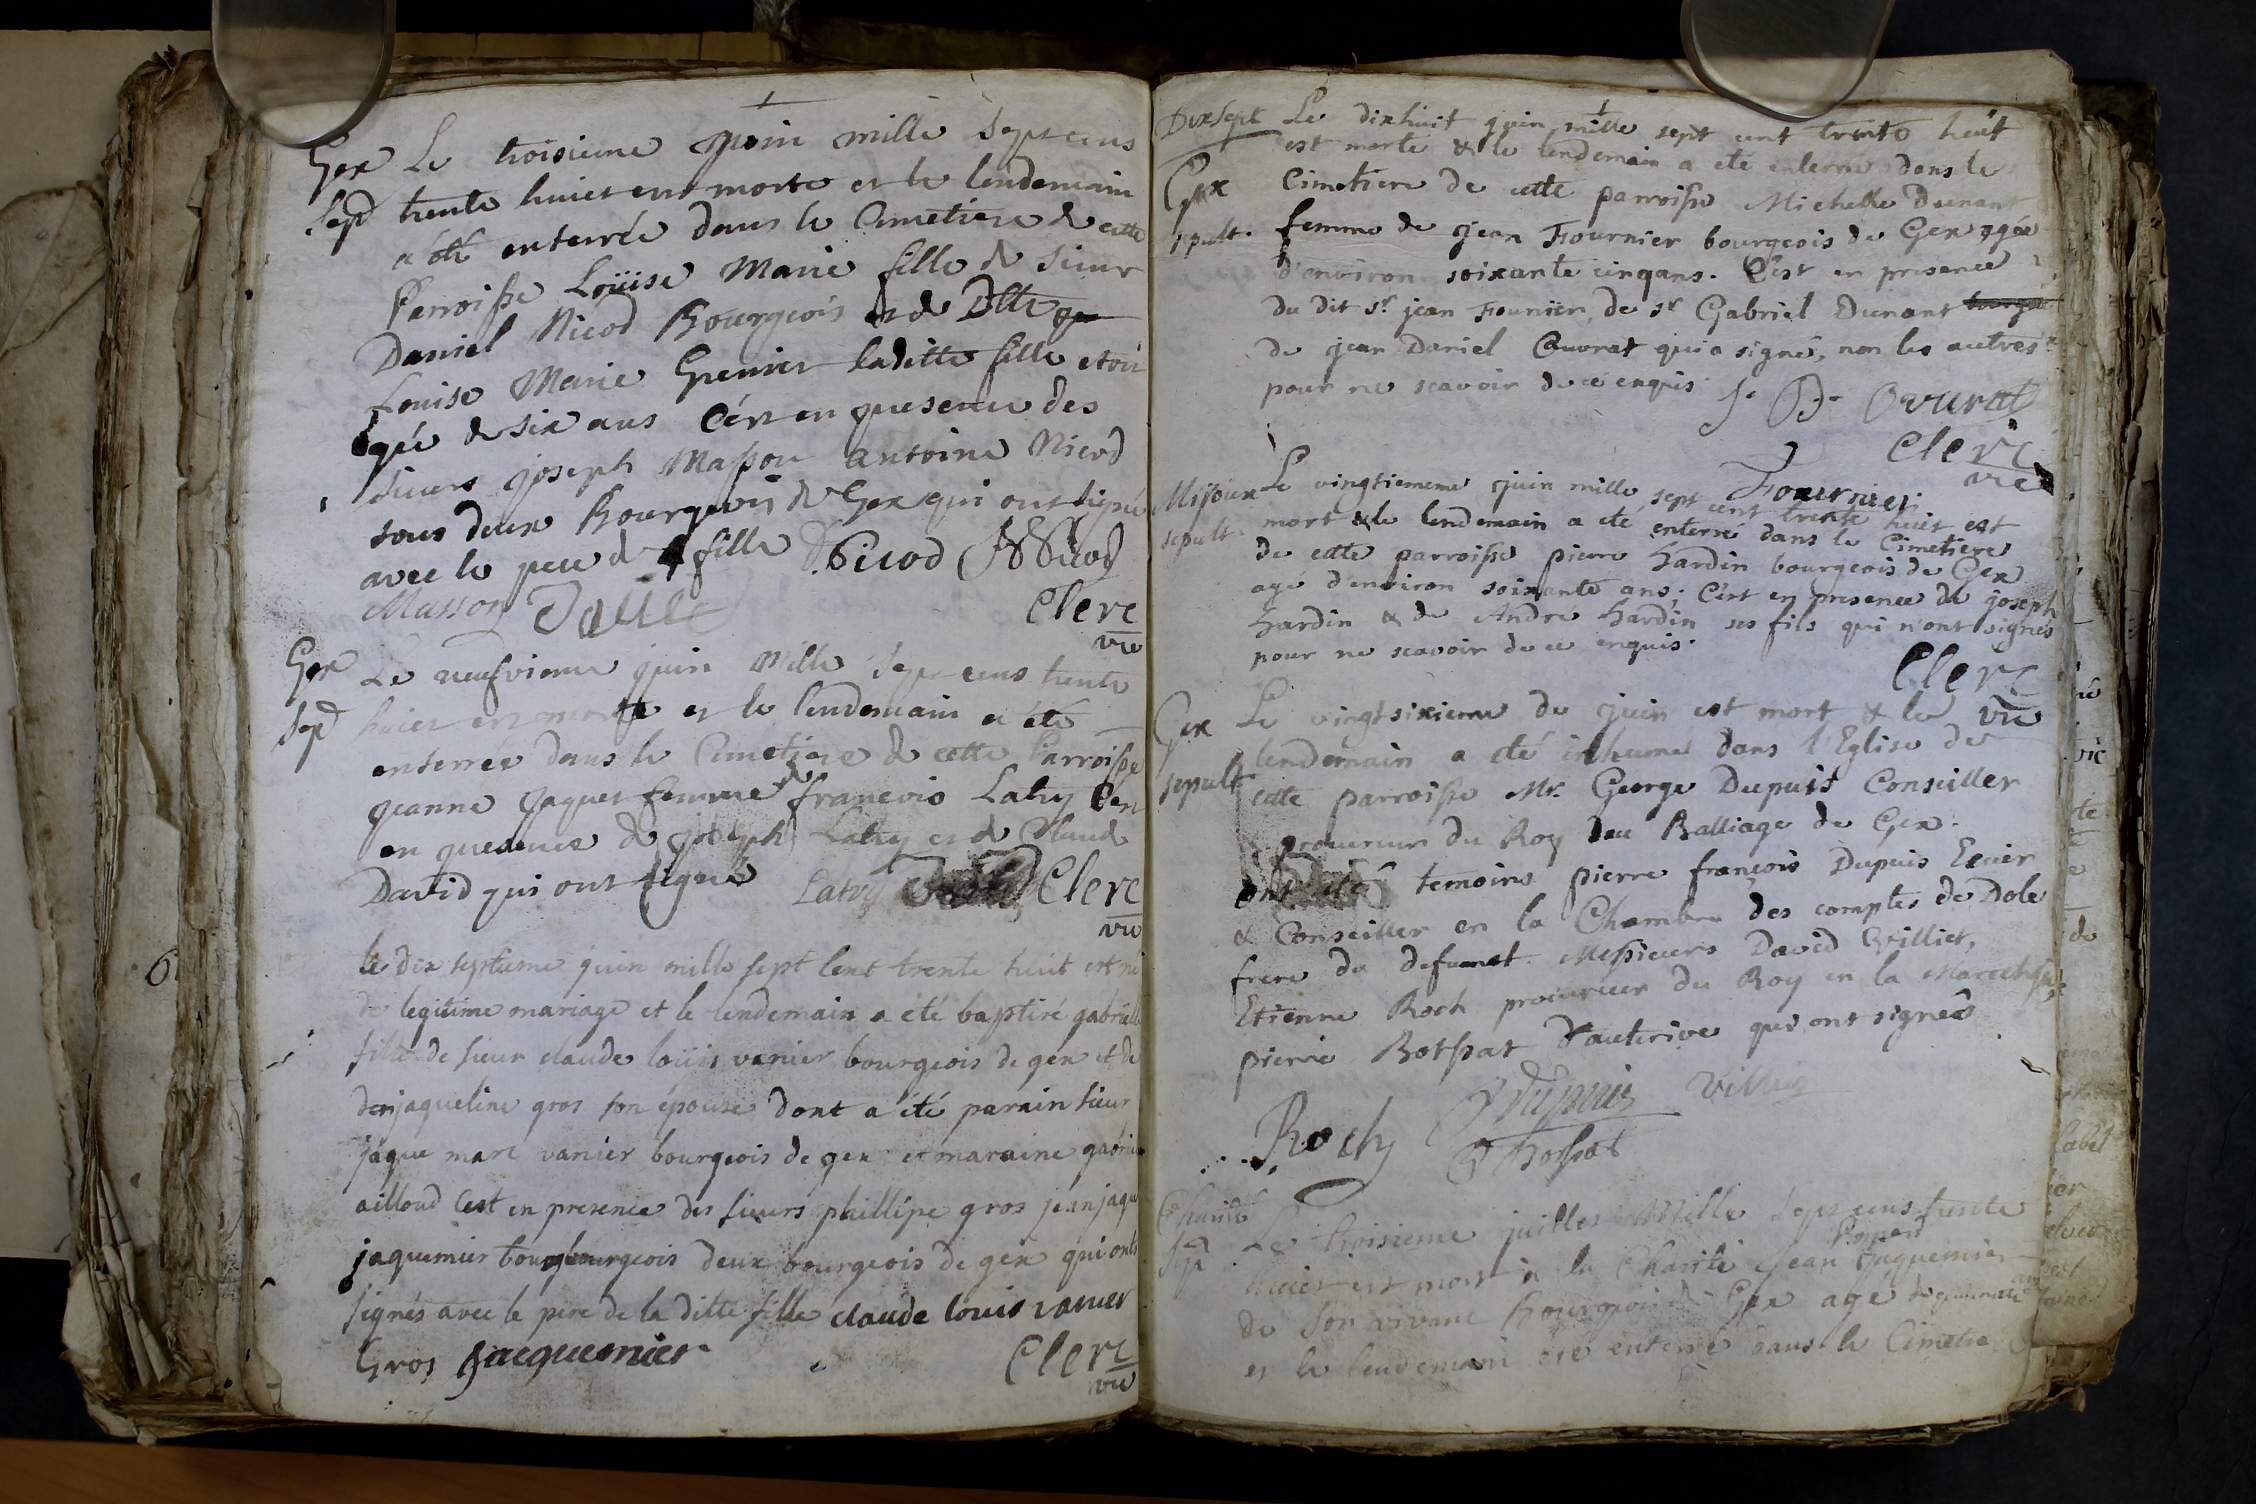 Gex Le troisieme juin mille sept cens
sep trente huict est morte et le lendemain
a été enterrée dans le Cimetiere de cette
Parroisse Loüise Marie fille de sieur
Daniel Nicod Bourgeois et de Dlle
Louise Marie Grenier laditte fille etoit
agée de six ans C'est en presence des
sieurs joseph Masson antoine Nicod
tous deux Bourgeois de Gex qui ont signé
avec le pere de fille Nicod Nicod
Masson Clerc
vic
Gex Le neufvieme juin Mille sept cens trente
sep huict est morte et le lendemain a été
enterrée dans le Cimetiere de cette Parroisse
jeanne jaquet femme de francois Latry C'en
en presence de joseph Latry et de Claude
David qui ont signé Latry Clerc
vic
le dix septieme juin mille sept cent trente huit est né
de legitime mariage et le lendemain a été baptizé gabrielle
fille de sieur claude loüis vanier bourgeois de gex et de
jaqueline gros son épouse dont a été parain sieur
jaque marc vanier bourgeois de gex et maraine gabriel
ailloud C'est en presence des sieurs phillipe gros jean jaque
jaquemier bourgeois deux bourgeois de gex qui onts
signés avec le pere de la ditte fille claude louis vanier
Gros Jacquemier Clerc
vic
Dixsept Le dixhuit juin mille sept cent trente huit
est morte & le lendemain a eté enterré dans le
Gex Cimetiere de cette parroisse Michelle Dunant
sepult. femme de jean Fournier bourgeois de Gex agée
d'environ soixante cinq ans. C'est en presence
du dit sr. jean Fournier, de sr Gabriel Dunant
de jean Daniel Ouvrat qui a signé, non les autres
pour ne scavoir de ce enquis. J. D. Ovurat
Clerc
vic
Fournier
Mijoux Le vingtiememe juin mille sept cent trente huit est
sepult. mort & le lendemain a eté enterré dans le Cimetiere
de cette parroisse pierre hardin bourgeois de Gex
agé d'environ soixante ans; C'est en presence de joseph
hardin & de Andre hardin ses fils qui n'ont signés
pour ne scavoir de ce enquis.
Clerc
vic
Gex Le vingtsixieme de juin est mort & le
sepult lendemain a eté inhumé dans l'Eglise de
cette parroisse Mr. George Dupuis Conseiller
procureur du Roy au Balliage de Gex.
temoins pierre françois Dupuis Ecuier
& Conseiller en la Chambre des comptes de Dole
frere du defunct. Messieurs David Villiet,
Etienne Roch procureur du Roy en la
pierre Bossat d'auterive qui ont signés
Roch Dupuis Villiet
Bossat
Charité Le troisieme juillet Mille sept cens trente
sep huict est mort à la Charité jean jaquemier
de son vivant Bourgeois de Gex agé de
et le lendemain été enterré dans le Cimetie